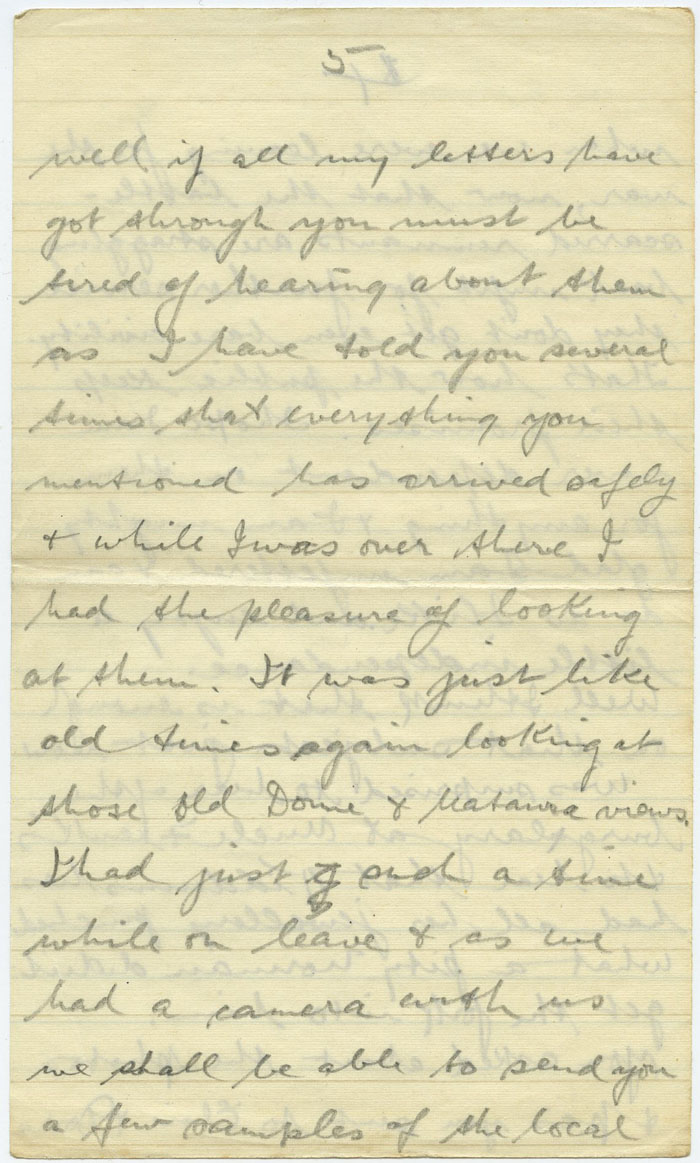 5
well if all my letters have
got through you must be
tired of hearing about them
as I have told you several
times that everything you
mentioned has arrived safely
& while I was over there I
had the pleasure of looking
at them. It was just like
old times again looking at
those old Dome & Mataura views.
I had just such a time
while on leave & as we
had a camera with us
we shall be able to send you
a few samples of the local